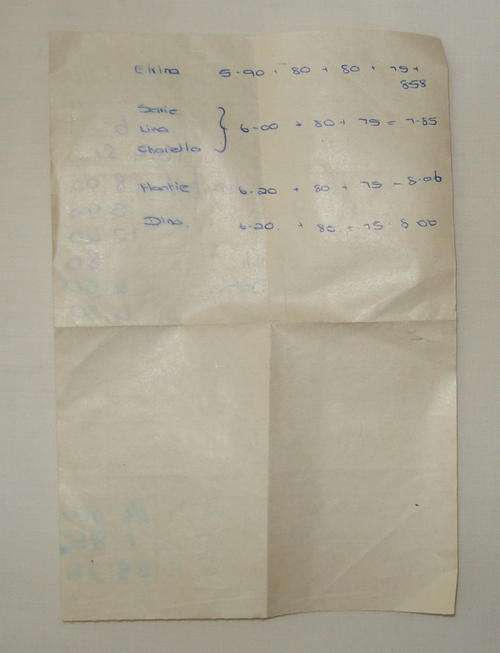 Elvina 5.90 + 80 + 80 + 75 +
858
Sonie
Lina } 6.00 + 80 + 75 = 7.85
Charello
6.20 + 80 + 75 = 8.06
Dino. 6.20 + 80 = 75. 8 00